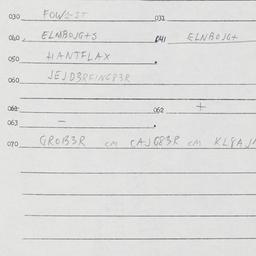 030 FOWS-IT 031
040 ELMBOJG+S 041 ELNBOJG+
050 HANTFLAX
060 JEJD3RFING83R
061 062 +
063 –
070 GROB3R cm CAJG83R cm KL8AJ